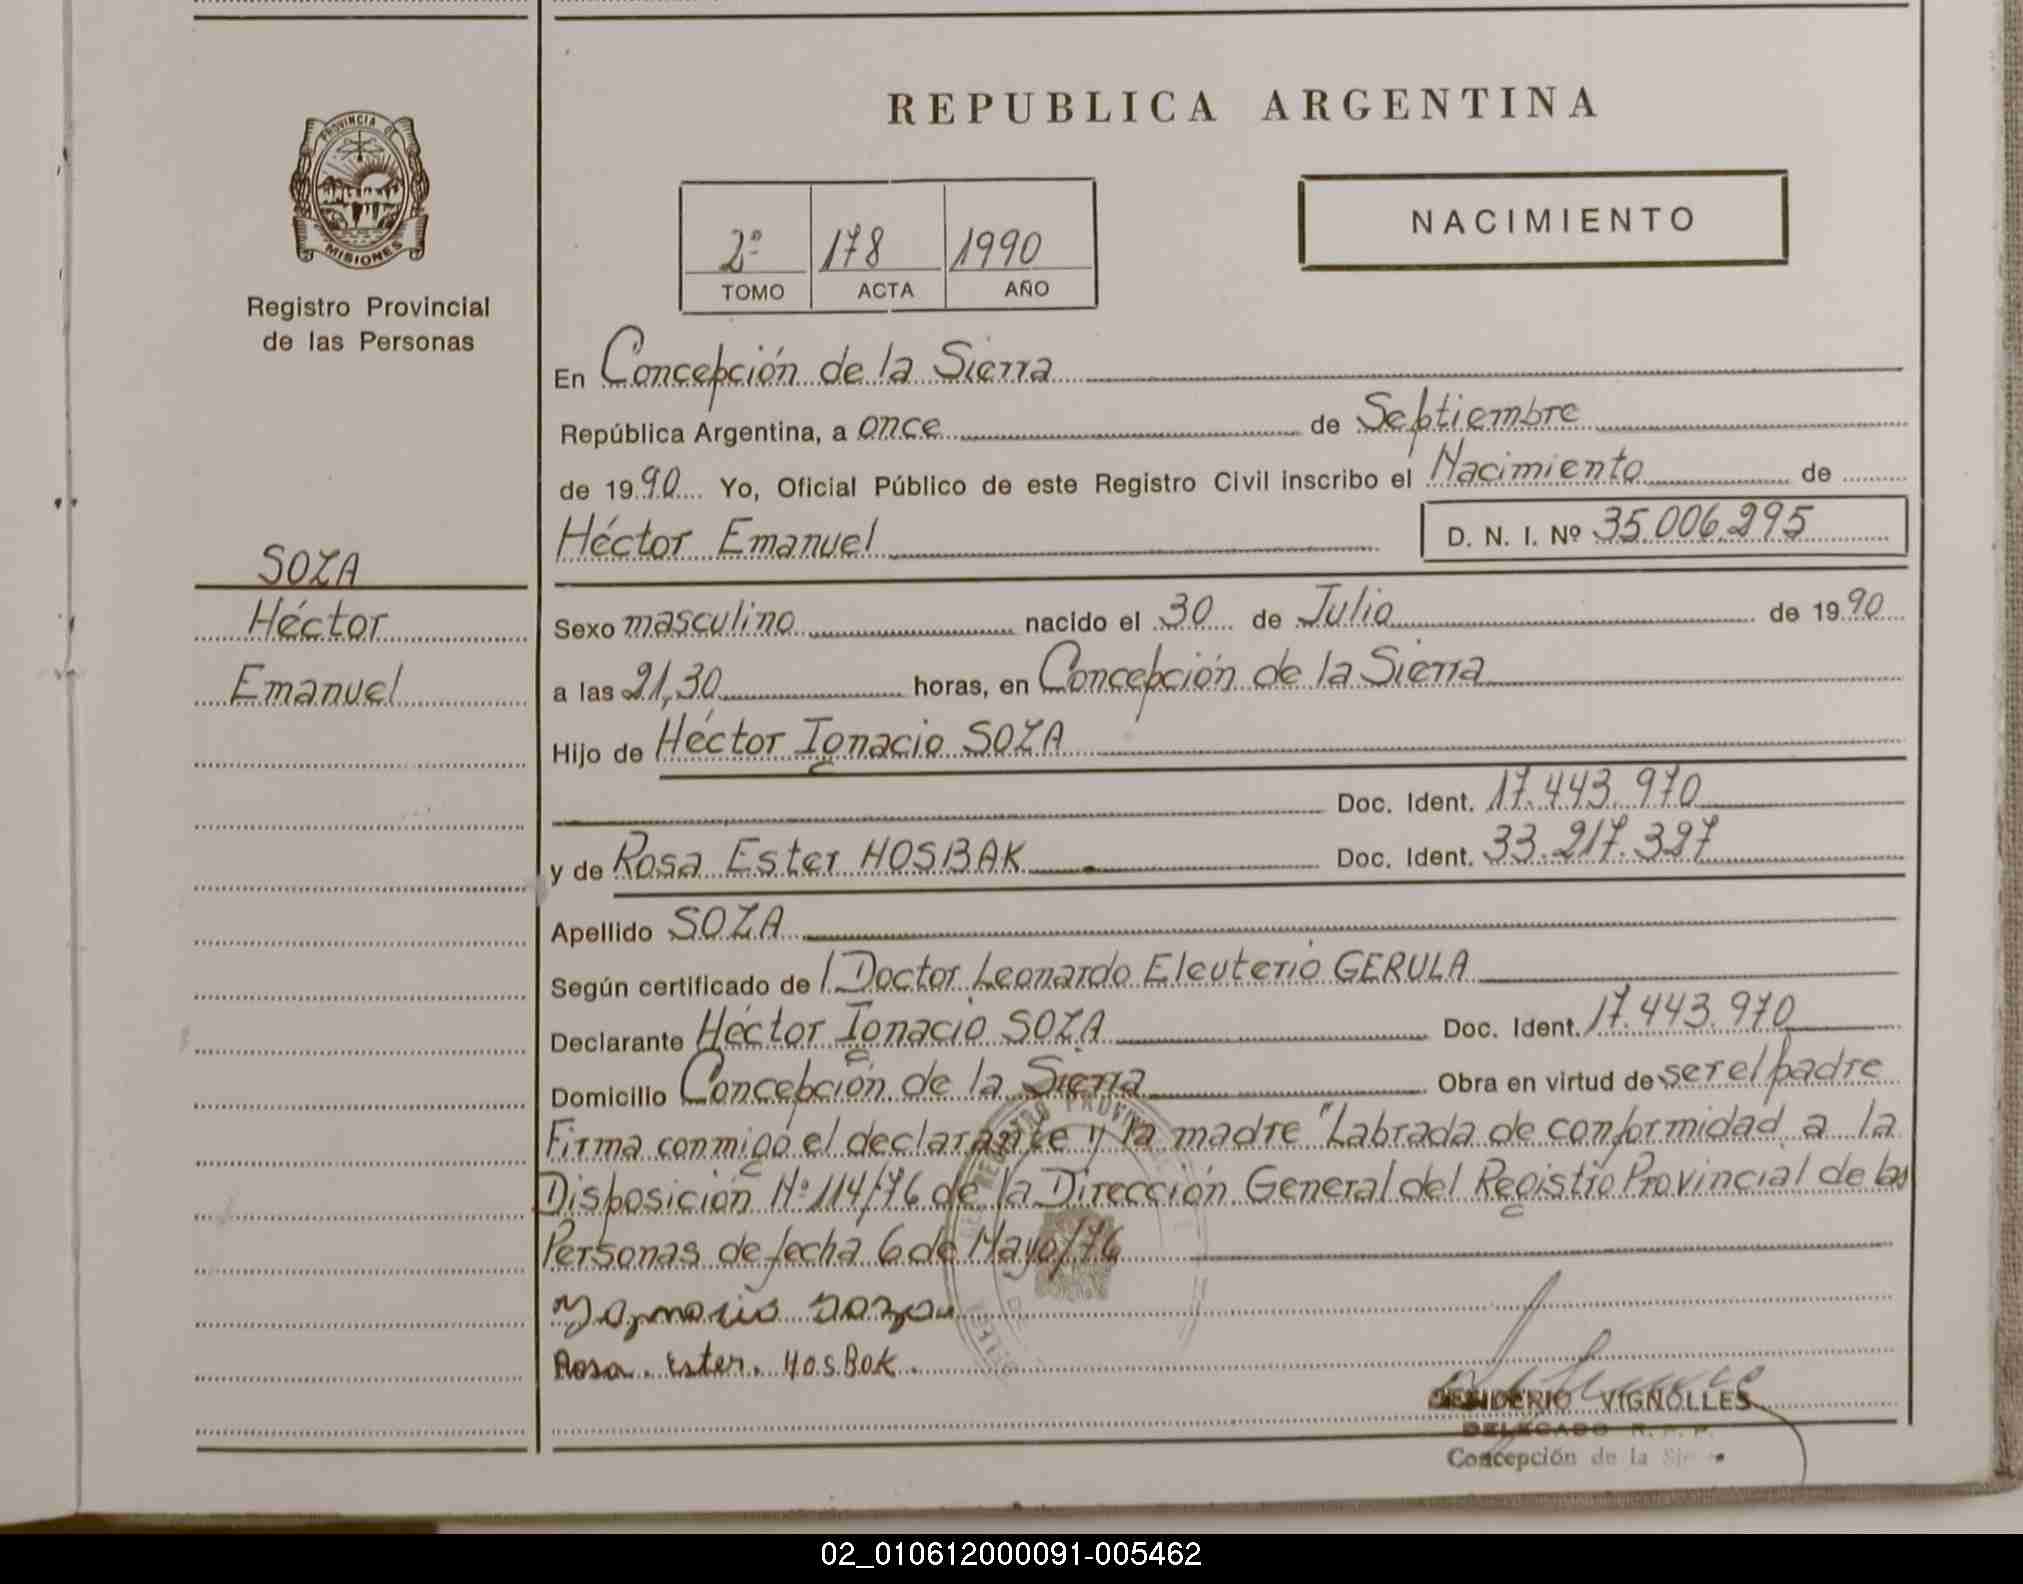 REPUBLICA ARGENTINA
PROVINCIA DE
MISIONES
Registro Provincial
de las Personas
2º 178 1990
TOMO ACTA AÑO
NACIMIENTO
En Concepción de la Sierra
República Argentina, a once de Septiembre
de 1990 Yo, Oficial Público de este Registro Civil inscribo el Nacimiento de
Héctor Emanuel D. N. I. Nº 35.006.295
SOZA
Héctor
Emanuel
Sexo masculino nacido el 30 de Julio de 1990
a las 21,30 horas, en Concepción de la Sierra
Hijo de Héctor Ignacio SOZA
Doc. Ident. 17.443.970
y de Rosa Ester HOSBAK Doc. Ident. 33.217.327
Apellido SOZA
Según certificado de l Doctor Leonardo Eleuterio GERULA
Declarante Héctor Ignacio SOZA Doc. Ident. 17.443.970
Domicilio Concepción de la Sierra Obra en virtud de ser el padre
Firma conmigo el declarante y la madre "Labrada de conformidad a la
Disposición Nº 114/76 de la Dirección General del Registro Provincial de las
Personas de fecha 6 de Mayo/76
Rosa Ester HOSBOK
DESIDERIO VIGNOLLES
DELEGADO R. P. P.
Concepción de la Sierra
02_010612000091-005462